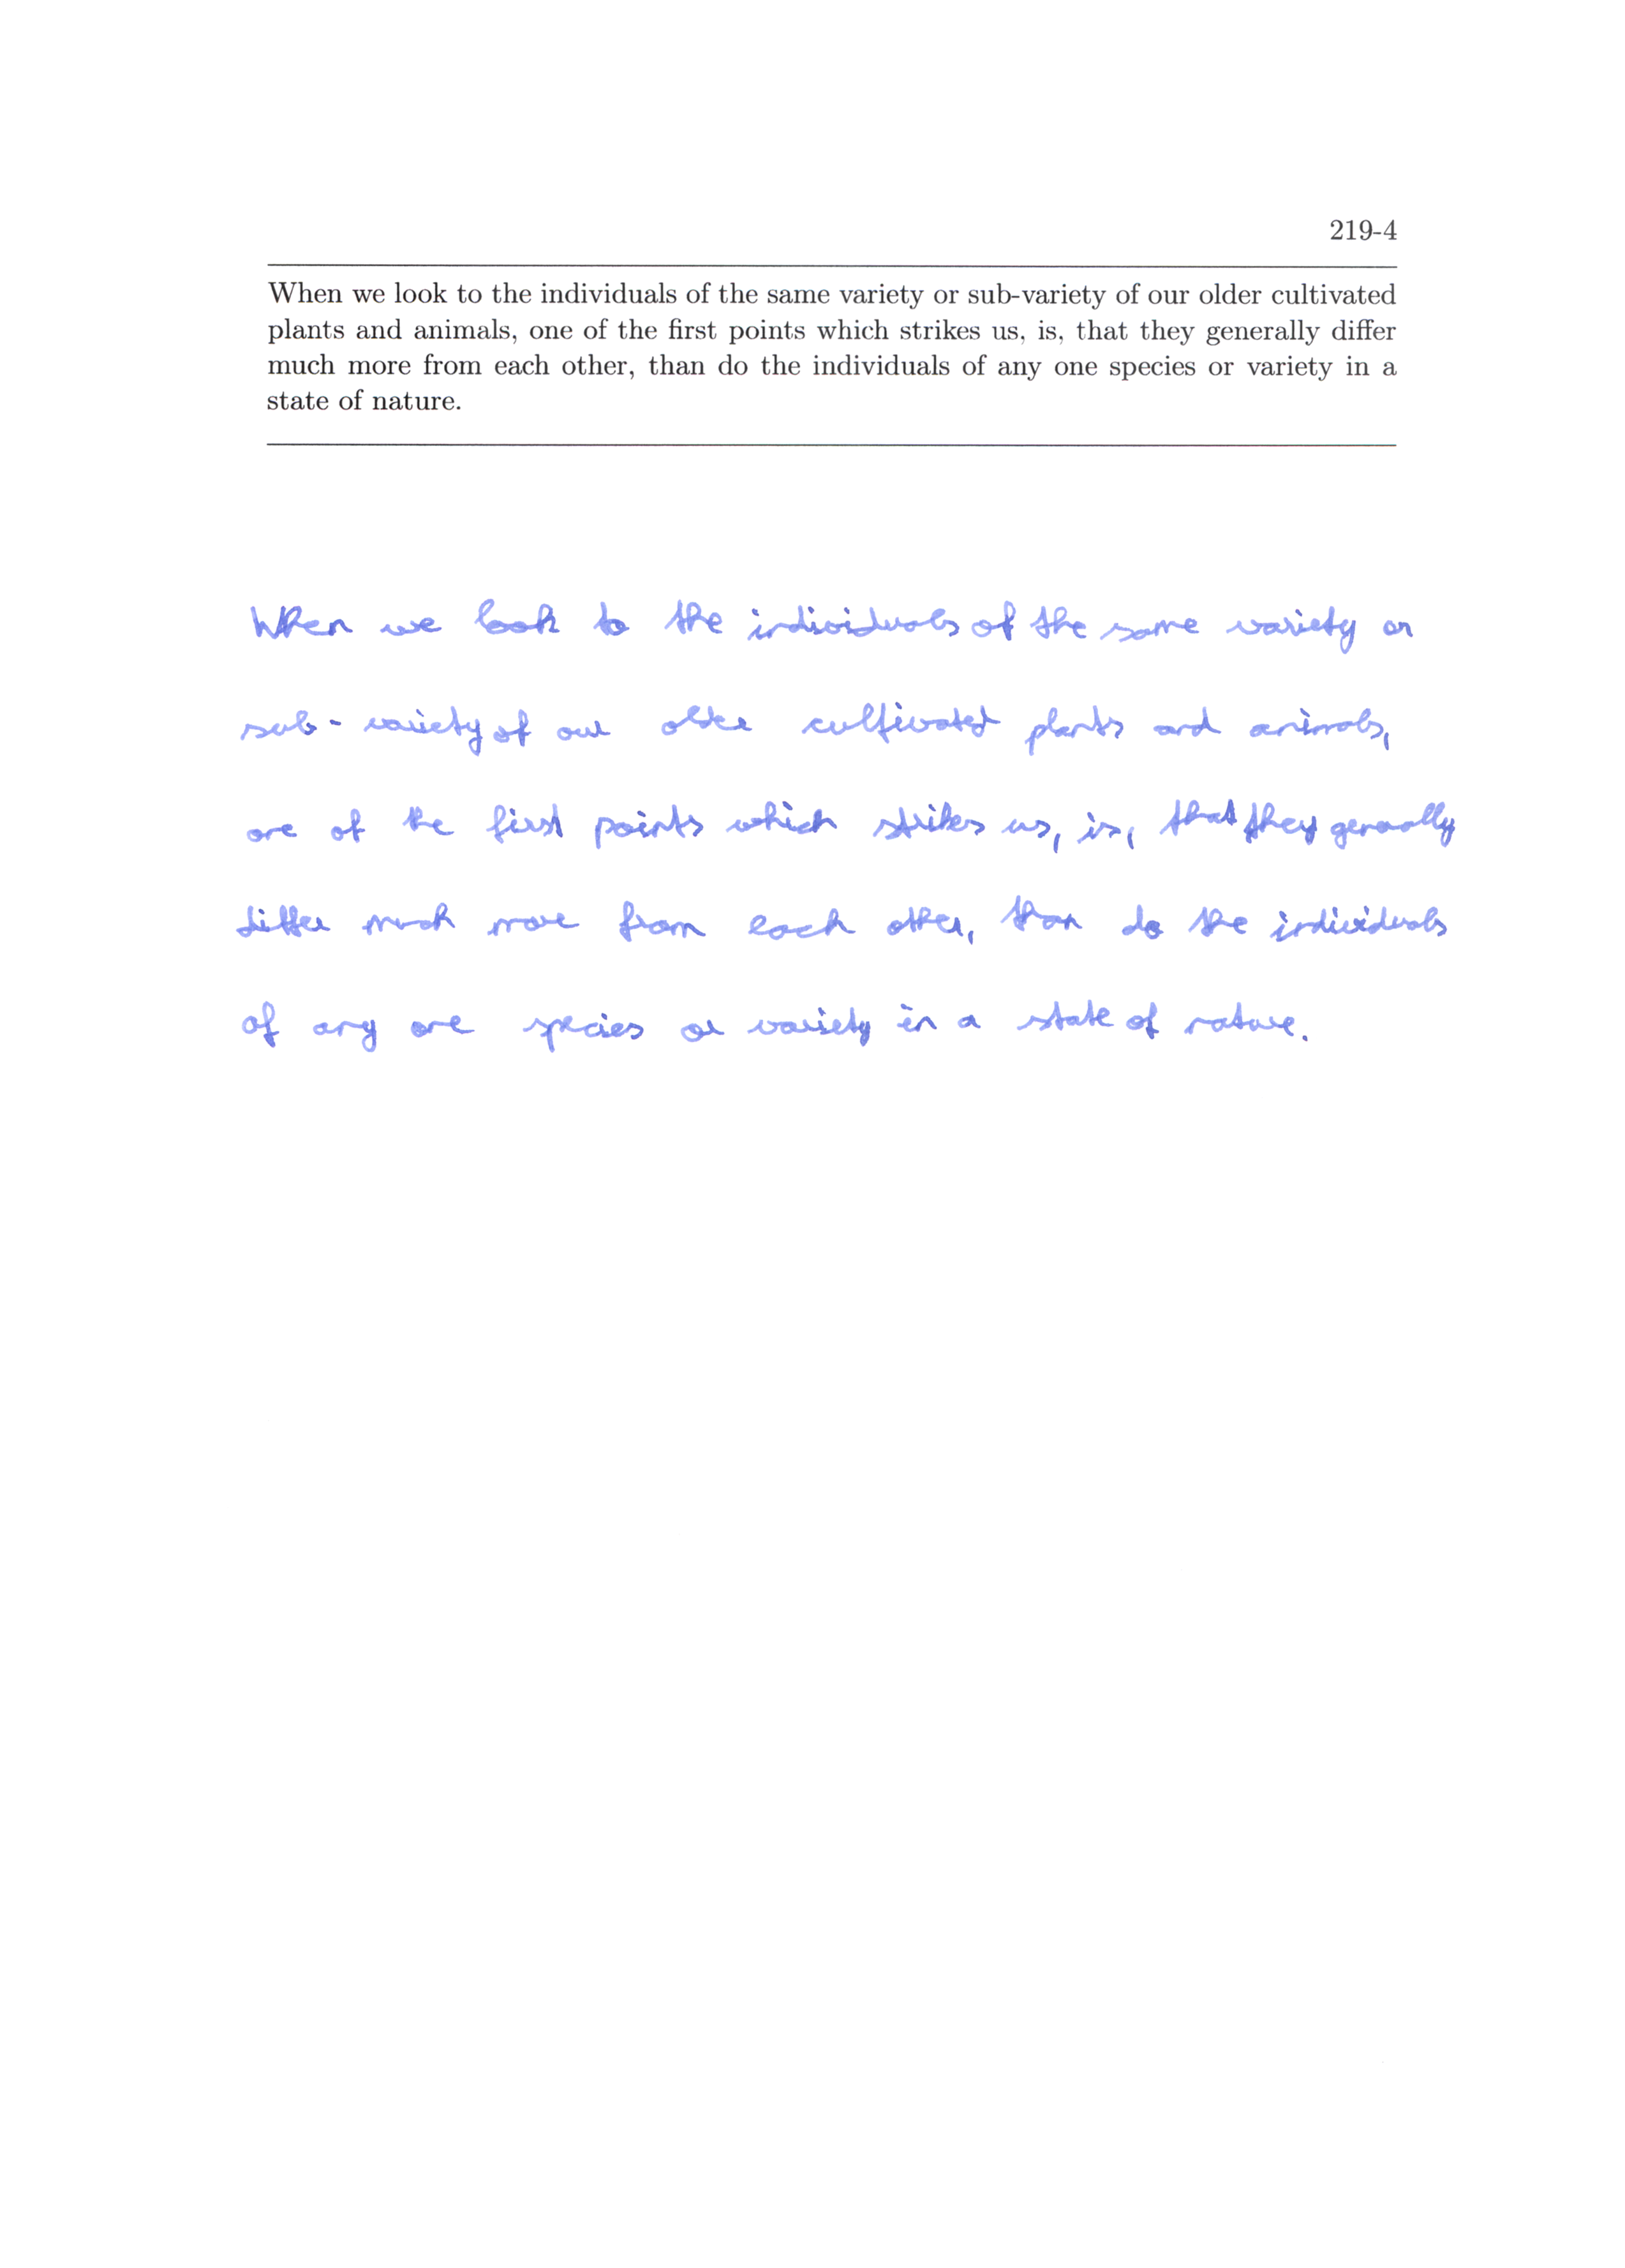 219-4
When we look to the individuals of the same variety or sub-variety of our older cultivated
plants and animals, one of the first points which strikes us, is, that they generally differ
much more from each other, than do the individuals of any one species or variety in a
state of nature.
When we look to the individuals of the same variety or
sub-variety of our older cultivated plants and animals,
one of the first points which strikes us, is, that they generally
differ much more from each other, than do the individuals
of any one species or variety in a state of nature.